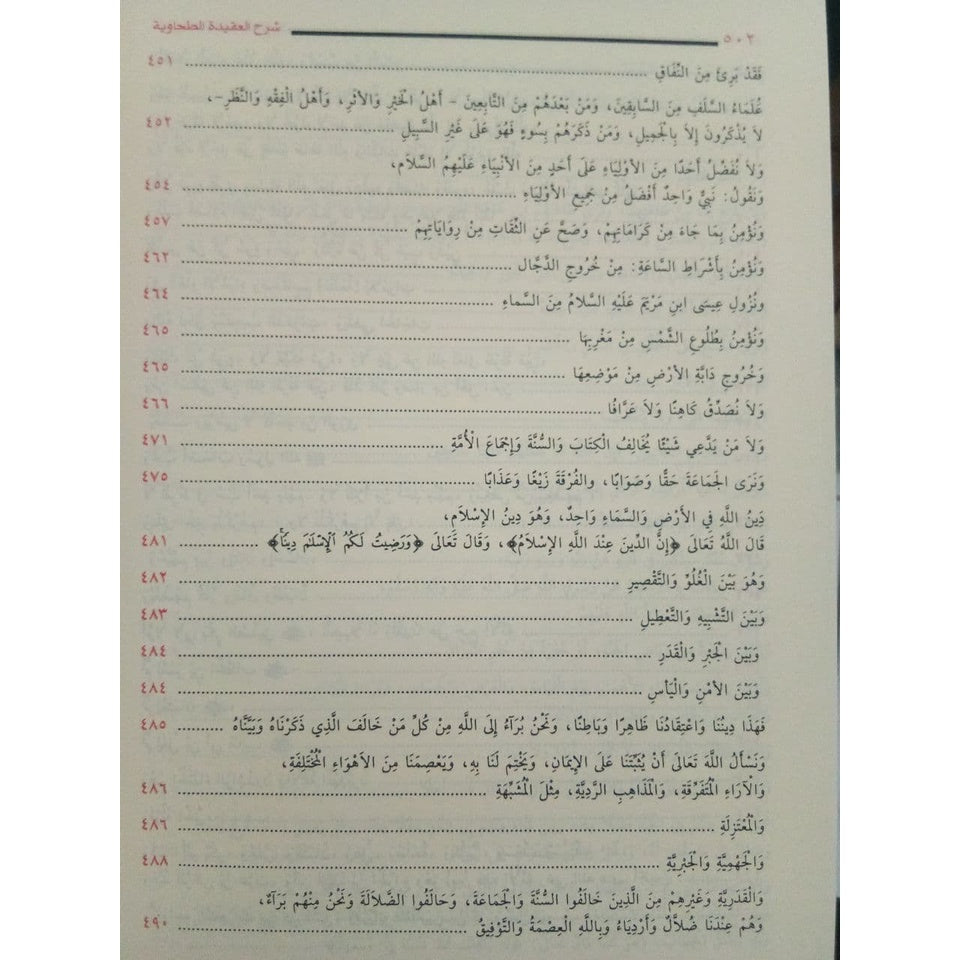 ٥٠٢ شرح العقيدة الطحاوية
فَقَدْ بَرِئَ مِنَ النِّفَاقِ ........ ٤٥١
عُلَمَاءُ السَّلَفِ مِنَ السَّابِقِينَ، وَمَنْ بَعْدَهُمْ مِنَ التَّابِعِينَ – أَهْلُ الْخَبَرِ وَالأَثَرِ، وَأَهْلُ الْفِقْهِ وَالنَّظَرِ–،
لاَ يُذْكَرُونَ إِلاَّ بِالْجَمِيلِ، وَمَنْ ذَكَرَهُمْ بِسُوءٍ فَهُوَ عَلَى غَيْرِ السَّبِيلِ ........ ٤٥٢
وَلاَ نُفَضِّلُ أَحَدًا مِنَ الأَوْلِيَاءِ عَلَى أَحَدٍ مِنَ الأَنْبِيَاءِ عَلَيْهِمُ السَّلاَم،
وَنَقُولُ: نَبِيٌّ وَاحِدٌ أَفْضَلُ مِنْ جَمِيعِ الأَوْلِيَاءِ ........ ٤٥٤
وَنُؤْمِنُ بِمَا جَاءَ مِنْ كَرَامَاتِهِمْ، وَصَحَّ عَنِ الثِّقَاتِ مِنْ رِوَايَاتِهِمْ ........ ٤٥٧
وَنُؤْمِنُ بِأَشْرَاطِ السَّاعَةِ: مِنْ خُرُوجِ الدَّجَّالِ ........ ٤٦٢
ونُزُولِ عِيسَى ابنِ مَرْيَمَ عَلَيْهِ السَّلامُ مِنَ السَّماءِ ........ ٤٦٤
وَنُؤْمِنُ بِطُلُوعِ الشَّمْسِ مِنْ مَغْرِبِهَا ........ ٤٦٥
وَخُرُوجِ دَابَّةِ الأَرْضِ مِنْ مَوْضِعِهَا ........ ٤٦٥
وَلاَ نُصَدِّقُ كَاهِنًا وَلاَ عَرَّافًا ........ ٤٦٦
وَلاَ مَنْ يَدَّعِي شَيْئًا يُخَالِفُ الْكِتَابَ وَالسُّنَّةَ وَإِجْمَاعَ الأُمَّةِ ........ ٤٧١
وَنَرَى الْجَمَاعَةَ حَقًّا وَصَوَابًا، والفُرْقَةَ زَيْغًا وَعَذَابًا ........ ٤٧٥
دِينُ اللَّهِ فِي الأَرْضِ وَالسَّمَاءِ وَاحِدٌ، وَهُوَ دِينُ الإِسْلاَمِ،
قَالَ اللَّهُ تَعَالَى ﴿إِنَّ الدِّينَ عِنْدَ اللَّهِ الإِسْلاَمُ﴾، وَقَالَ تَعَالَى ﴿وَرَضِيتُ لَكُمُ ٱلْإِسْلَٰمَ دِينًا﴾ ........ ٤٨١
وَهُوَ بَيْنَ الْغُلُوِّ وَالتَّقْصِيرِ ........ ٤٨٢
وَبَيْنَ التَّشْبِيهِ وَالتَّعْطِيلِ ........ ٤٨٣
وَبَيْنَ الْجَبْرِ وَالْقَدَرِ ........ ٤٨٤
وَبَيْنَ الأَمْنِ وَالْيَأْسِ ........ ٤٨٤
فَهَذَا دِينُنَا وَاعْتِقَادُنَا ظَاهِرًا وَبَاطِنًا، وَنَحْنُ بُرَآءُ إِلَى اللَّهِ مِنْ كُلِّ مَنْ خَالَفَ الَّذِي ذَكَرْنَاهُ وَبَيَّنَّاهُ ........ ٤٨٥
وَنَسْأَلُ اللَّهَ تَعَالَى أَنْ يُثَبِّتَنَا عَلَى الإِيمَانِ، وَيَخْتِمَ لَنَا بِهِ، وَيَعْصِمَنَا مِنَ الأَهْوَاءِ الْمُخْتَلِفَةِ،
وَالآرَاءِ الْمُتَفَرِّقَةِ، وَالْمَذَاهِبِ الرَّدِيَّةِ، مِثْلَ الْمُشَبِّهَةِ ........ ٤٨٦
وَالْمُعْتَزِلَةِ ........ ٤٨٦
وَالْجَهْمِيَّةِ وَالْجَبْرِيَّةِ ........ ٤٨٨
وَالْقَدَرِيَّةِ وَغَيْرِهِمْ مِنَ الَّذِينَ خَالَفُوا السُّنَّةَ وَالْجَمَاعَةَ، وَحَالَفُوا الضَّلاَلَةَ وَنَحْنُ مِنْهُمْ بَرَآءٌ،
وَهُمْ عِنْدَنَا ضُلاَّلٌ وَأَرْدِيَاءُ وَبِاللَّهِ الْعِصْمَةُ وَالتَّوْفِيقُ ........ ٤٩٠